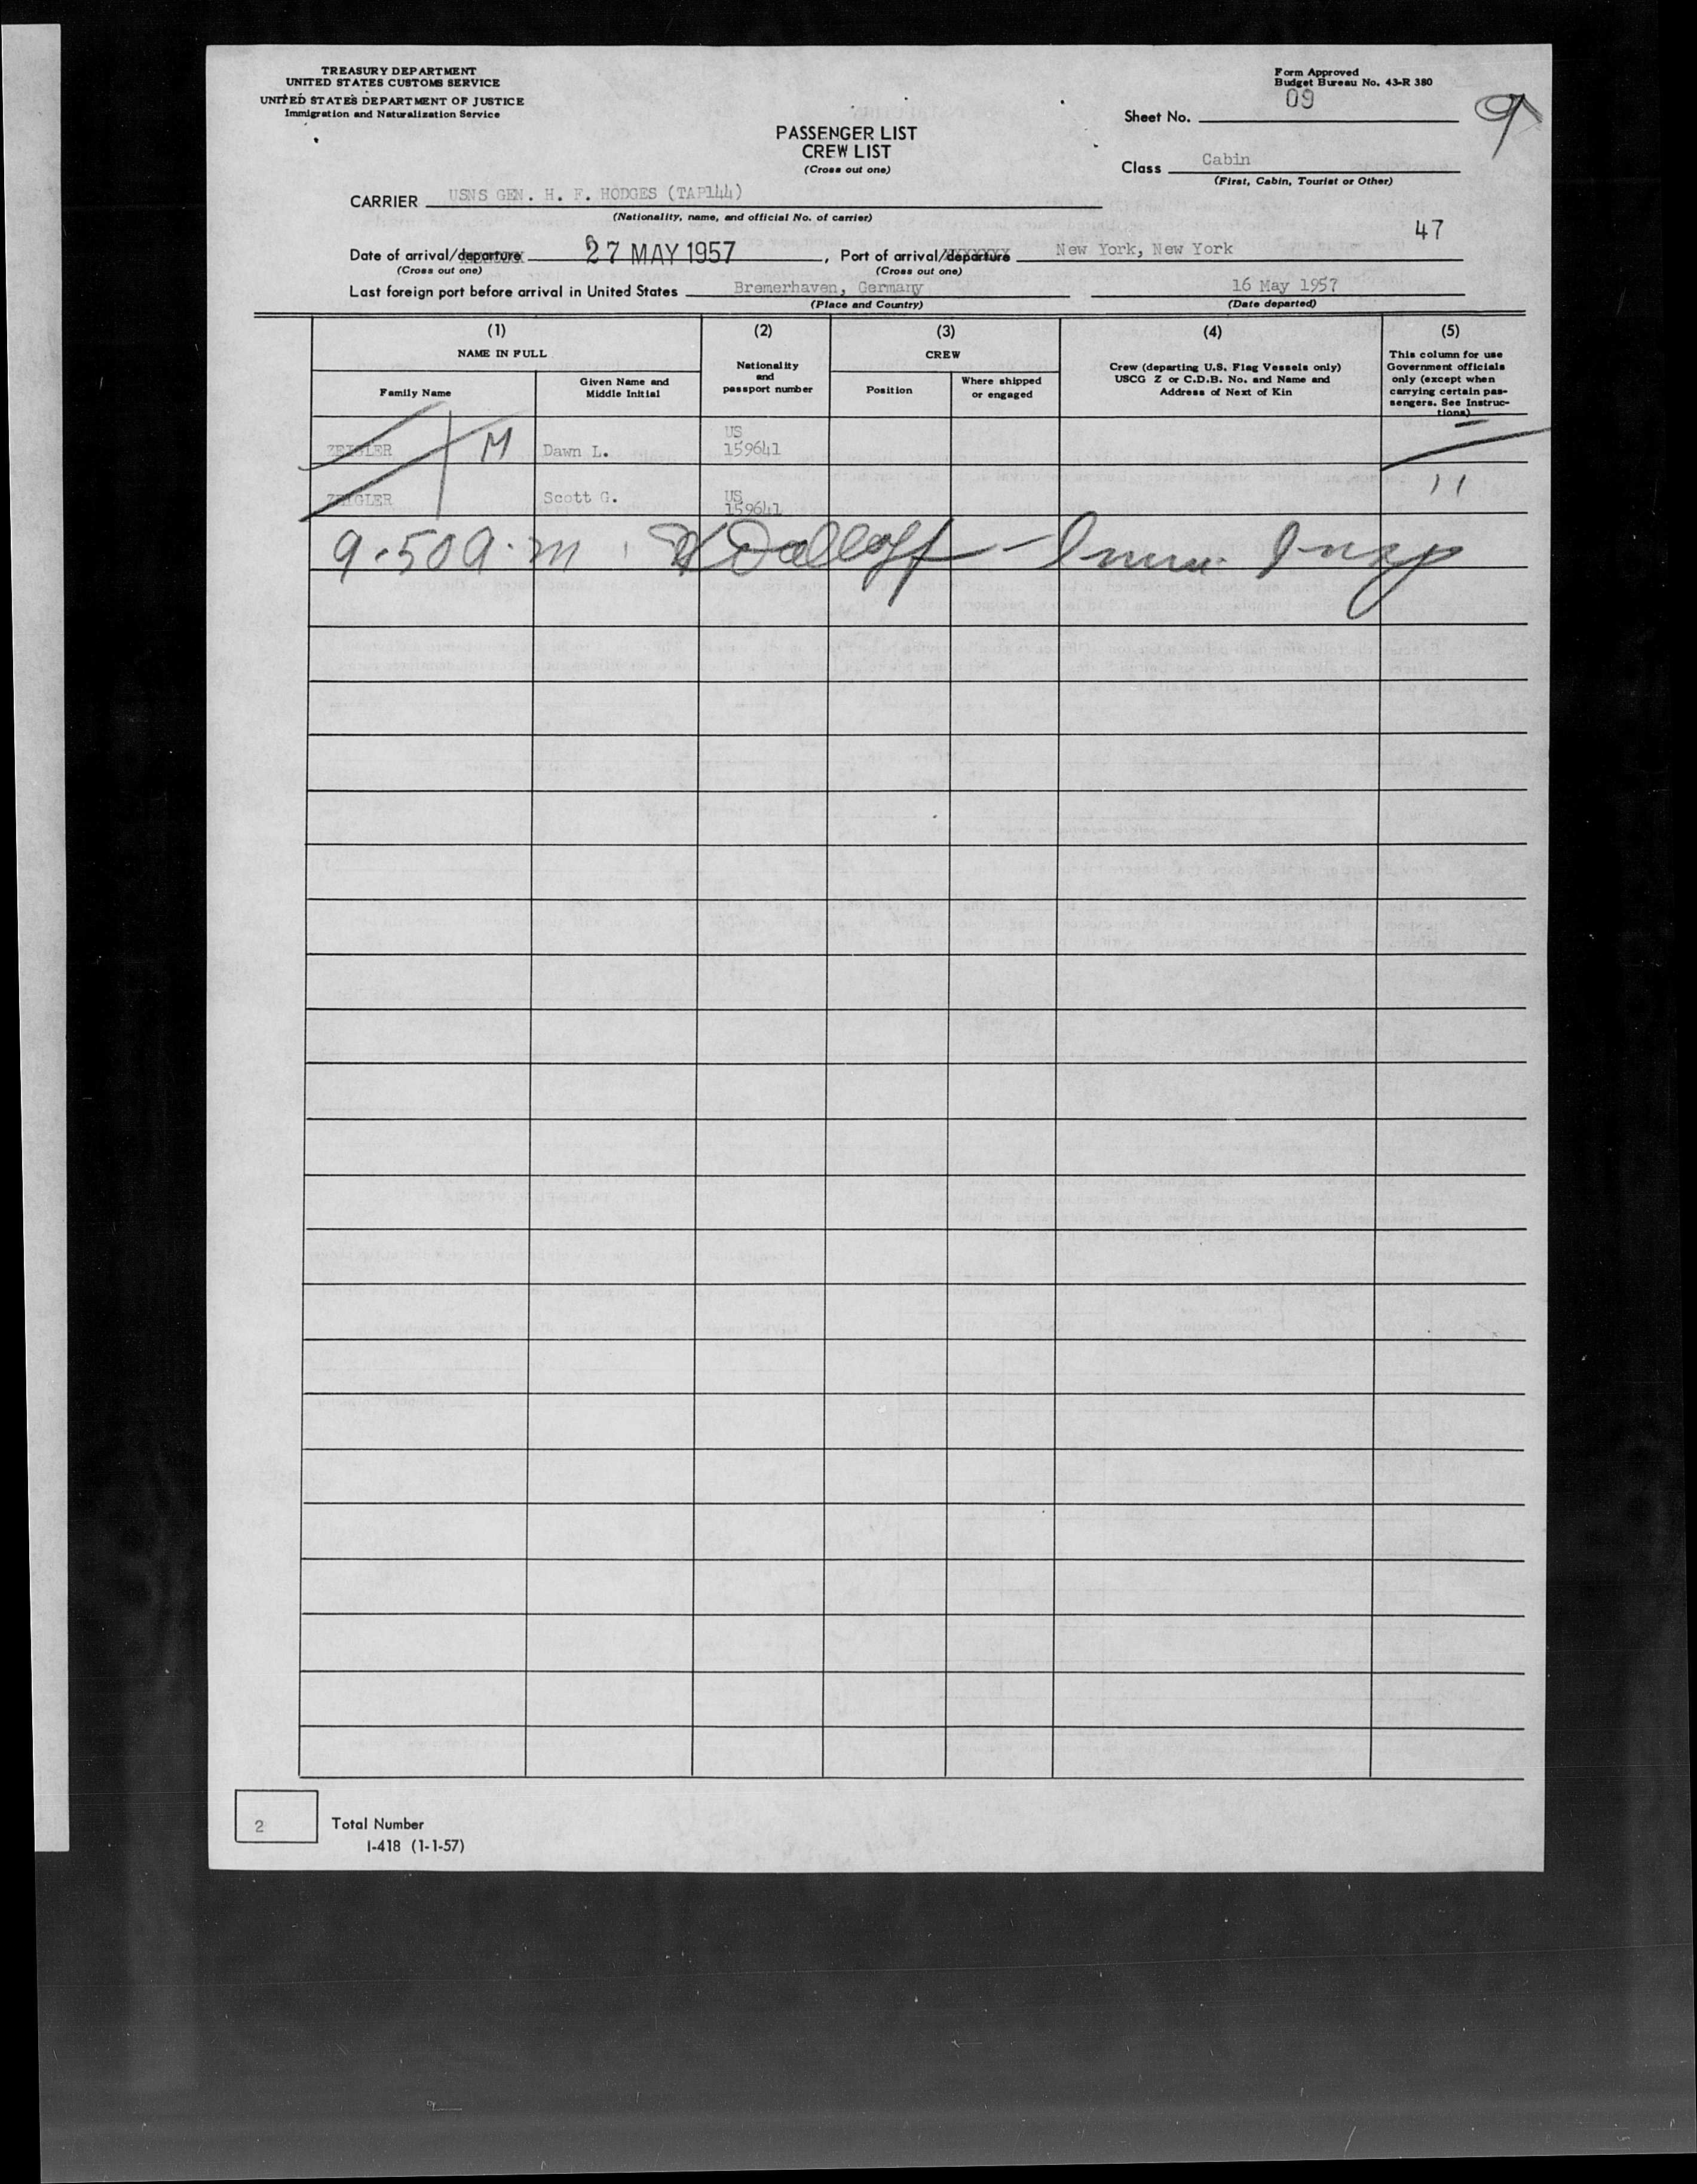 TREASURY DEPARTMENT
UNITED STATES CUSTOMS SERVICE
UNITED STATES DEPARTMENT OF JUSTICE
Immigration and Naturalization Service
Form Approved
Budget Bureau No. 43-R 380
Sheet No. 09
9
PASSENGER LIST
CREW LIST
(Cross out one)
Class Cabin
(First, Cabin, Tourist or Other)
CARRIER USNS GEN. H. F. HODGES (TAP144)
(Nationality, name, and official No. of carrier)
47
Date of arrival/departure 27 MAY 1957, Port of arrival/departure New York, New York
(Cross out one) (Cross out one)
Last foreign port before arrival in United States Bremerhaven, Germany 16 May 1957
(Place and Country) (Date departed)
(1) (2) (3) (4) (5)
NAME IN FULL
Family Name
Given Name and
Middle Initial
Nationality
and
passport number
CREW
Position
Where shipped
or engaged
Crew (departing U.S. Flag Vessels only)
USCG Z or C.D.B. No. and Name and
Address of Next of Kin
This column for use
Government officials
only (except when
carrying certain pas-
sengers. See Instruc-
tions)
ZEIGLER M Dawn L. US
159641
ZEIGLER Scott G. US
159641
9.50 a.m. Imm. Insp
2 Total Number
I-418 (1-1-57)